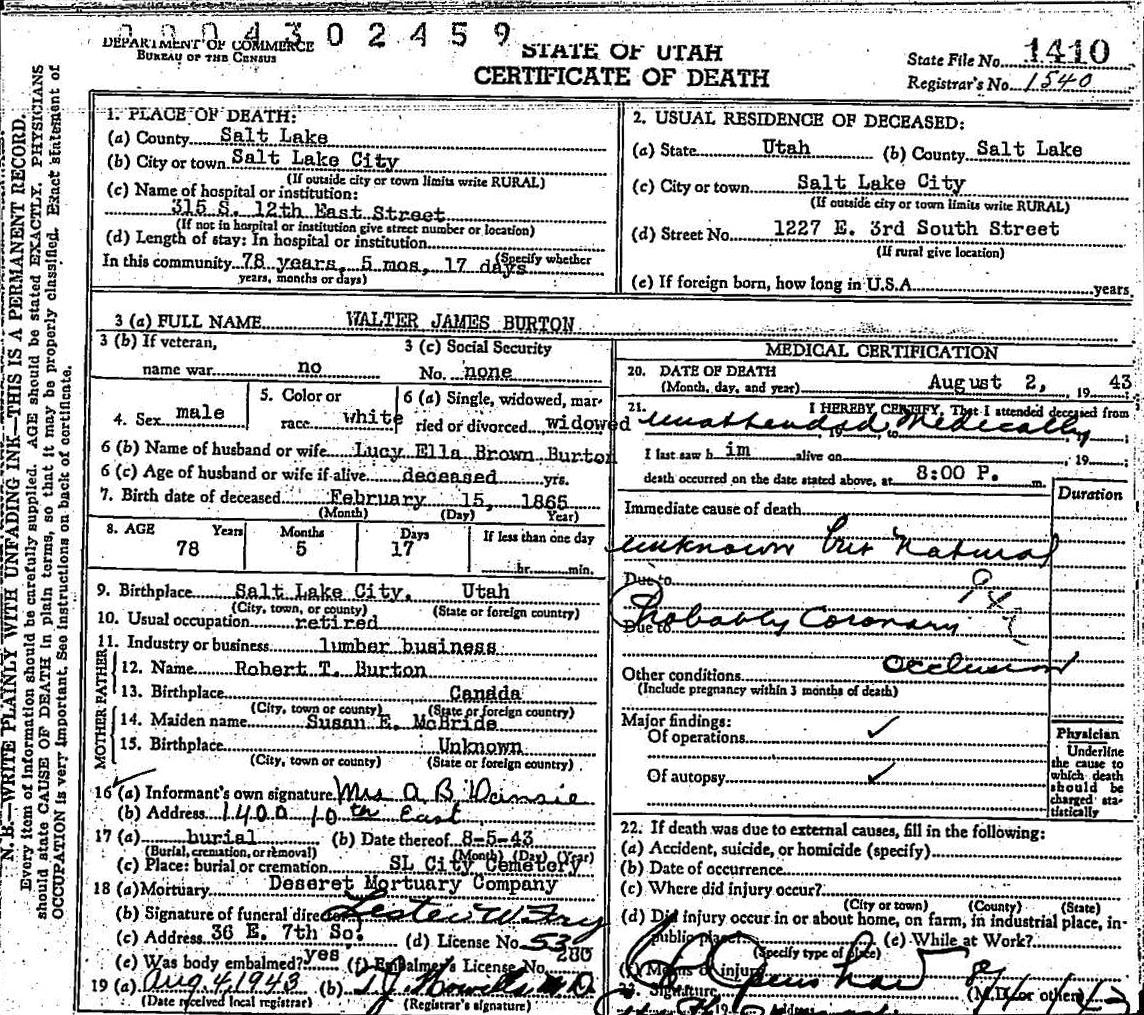 0 0 0 4 3 0 2 4 5 9
DEPARTMENT OF COMMERCE
BUREAU OF THE CENSUS
STATE OF UTAH
CERTIFICATE OF DEATH
State File No. 1410
Registrar's No. 1540
N. B.—WRITE PLAINLY WITH UNFADING INK—THIS IS A PERMANENT RECORD.
Every item of information should be carefully supplied. AGE should be stated EXACTLY. PHYSICIANS
should state CAUSE OF DEATH in plain terms, so that it may be properly classified. Exact statement of
OCCUPATION is very important. See instructions on back of certificate.
1. PLACE OF DEATH:
(a) County Salt Lake
(b) City or town Salt Lake City
(If outside city or town limits write RURAL)
(c) Name of hospital or institution:
315 S. 12th East Street
(If not in hospital or institution give street number or location)
(d) Length of stay: In hospital or institution
(Specify whether
In this community 78 years, 5 mos, 17 days
years, months or days)
2. USUAL RESIDENCE OF DECEASED:
(a) State Utah (b) County Salt Lake
(c) City or town Salt Lake City
(If outside city or town limits write RURAL)
(d) Street No. 1227 E. 3rd South Street
(If rural give location)
(e) If foreign born, how long in U.S.A. years.
3 (a) FULL NAME WALTER JAMES BURTON
3 (b) If veteran,
name war. no
3 (c) Social Security
No. none
4. Sex male
5. Color or
race white
6 (a) Single, widowed, mar-
ried or divorced widowed
6 (b) Name of husband or wife Lucy Ella Brown Burton
6 (c) Age of husband or wife if alive deceased yrs.
7. Birth date of deceased February 15, 1865
(Month) (Day) Year)
8. AGE Years Months Days If less than one day
78 5 17
hr. min.
9. Birthplace Salt Lake City, Utah
(City, town, or county) (State or foreign country)
10. Usual occupation retired
11. Industry or business lumber business
FATHER
12. Name Robert T. Burton
13. Birthplace Canada
(City, town or county) (State or foreign country)
MOTHER
14. Maiden name Susan E. McBride
15. Birthplace Unknown
(City, town or county) (State or foreign country)
16 (a) Informant's own signature Mrs A B
(b) Address 1400 10th East
17 (a) burial (b) Date thereof 8-5-43
(Burial, cremation, or removal) (Month) (Day) (Year)
(c) Place: burial or cremation SL City Cemetery
18 (a) Mortuary Deseret Mortuary Company
(b) Signature of funeral director Lester W.
(c) Address 36 E. 7th So. (d) License No. 53
(e) Was body embalmed? yes (f) Embalmer's License No. 280
19 (a) Aug. 4, 1943 (b)
(Date received local registrar) (Registrar's signature)
MEDICAL CERTIFICATION
20. DATE OF DEATH
(Month, day, and year) August 2, 19 43
21. I HEREBY CERTIFY, That I attended deceased from
Unattended Medically
19 to
I last saw h im alive on 19 ;
death occurred on the date stated above, at 8:00 P. m.
Duration
Immediate cause of death
Unknown but Natural
Due to
Probably Coronary
Due to
Occlusion
Other conditions
(Include pregnancy within 3 months of death)
Major findings:
Of operations ✓
Of autopsy ✓
Physician
Underline
the cause to
which death
should be
charged sta-
tistically
22. If death was due to external causes, fill in the following:
(a) Accident, suicide, or homicide (specify)
(b) Date of occurrence
(c) Where did injury occur?
(City or town) (County) (State)
(d) Did injury occur in or about home, on farm, in industrial place, in-
public place? (e) While at Work?
(Specify type of place)
(f) Means of injury
23. Signature (M.D. or other)